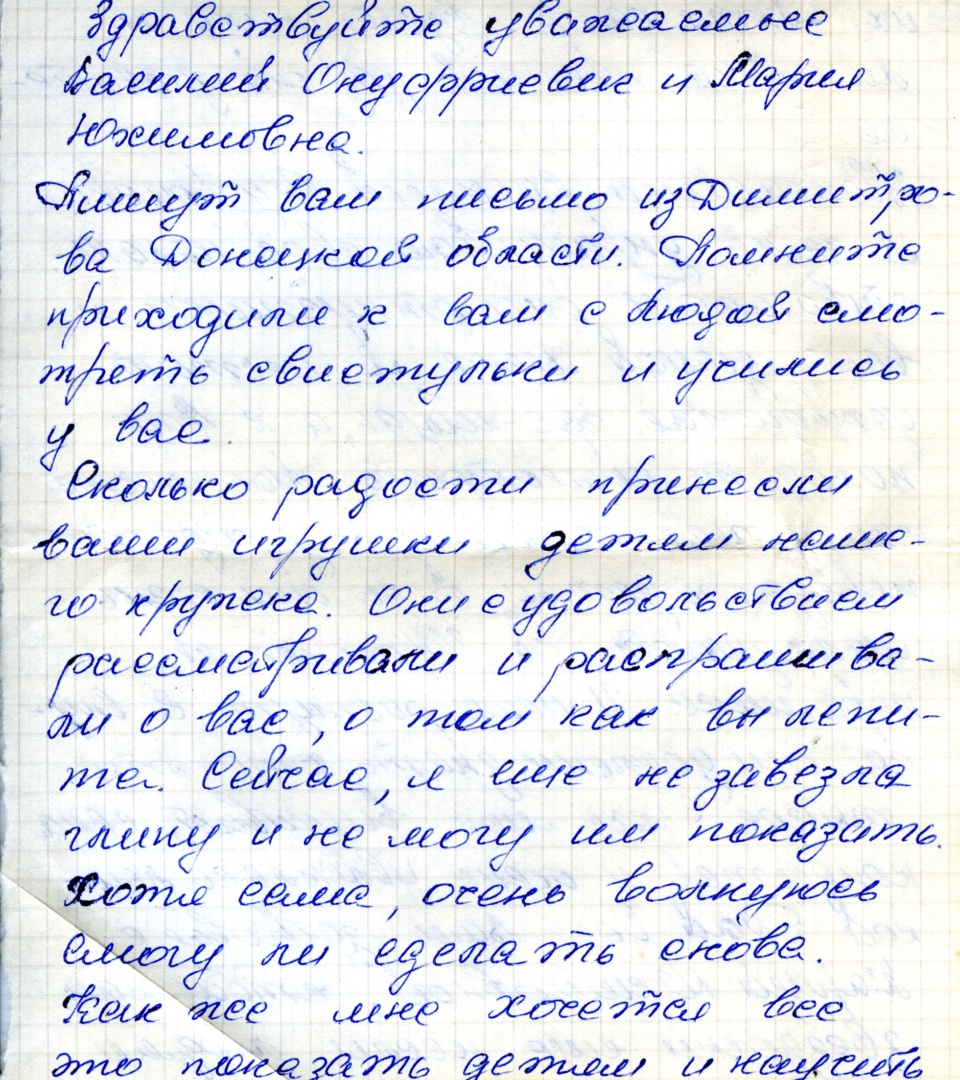 Здравствуйте уважаемые
Василий Онуфриевич и Мария
Юхимовна.
Пишут вам письмо из Димитро-
ва Донецкой области. Помните
приходили к вам с Людой смо-
треть свистульки и учились
у вас.
Сколько радости принесли
ваши игрушки детям наше-
го кружка. Они с удовольствием
рассматривали и распрашива-
ли о вас, о том как вы лепи-
те. Сейчас, я еще не завезла
глину и не могу им показать.
Хотя сама, очень волнуюсь
смогу ли сделать снова.
Как же мне хочется все
это показать детям и научить